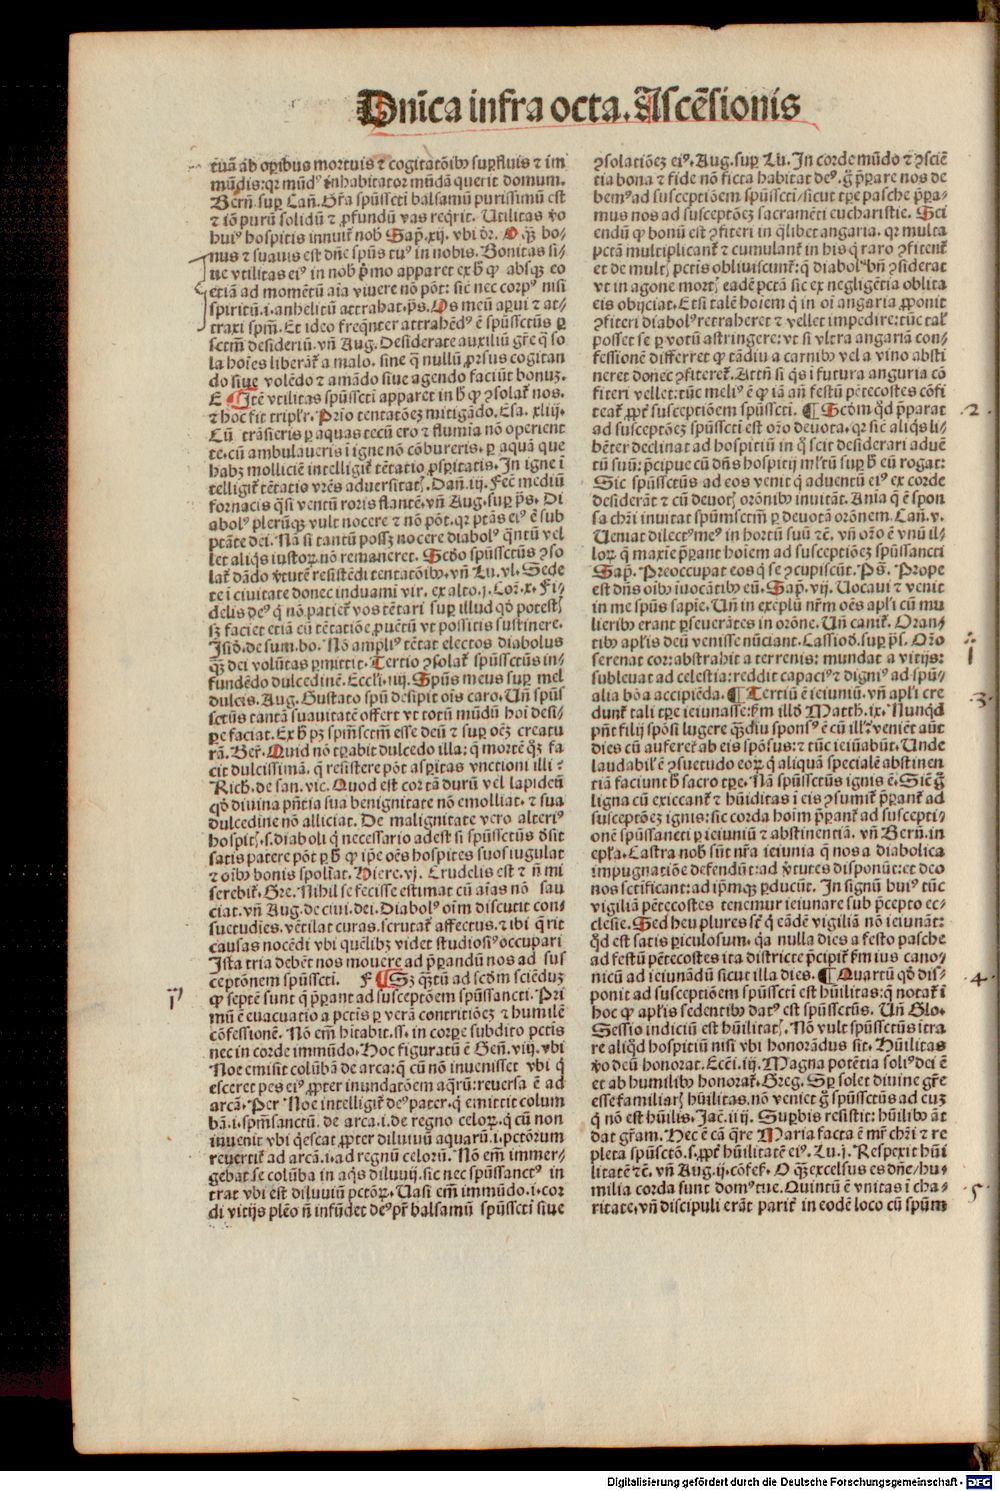 Dnīca infra octa. Ascēsionis
tuā ab oꝑibus mortuis ⁊ cogitatōibꝰ suꝑfluis ⁊ im
mūdis: qꝛ mūdꝰ inhabitator mūdā querit domum.
Bern̄. sup Can̄. Gr̄a spūsscti balsamū purissimū est
⁊ iō purū solidū ⁊ ꝓfundū vas reqͥrit. Utilitas ꝟo
huiꝰ hospitis innuit nob Sap̄. xij. vbi dr̄. O qꝫ bo-
nus ⁊ suauis est dn̄e spūs tuꝰ in nobis. Bonitas si-
ue vtilitas eiꝰ in nob pͥmo apparet ex h̄ ꝙ absqꝫ eo
etiā ad momētū aīa viuere nō pōt: sic nec corpꝰ nisi
spiritū .i. anhelitū attrahat. ps. Os meū aꝑui ⁊ at-
traxi spm̄. Et ideo freqn̄ter attrahēdꝰ ē spūssctūs ꝑ
sctm̄ desideriū. vn̄ Aug. Desiderate auxiliū gr̄e ꝙ so
la hoīes liberāt a malo. sine ꝗ nullū ꝓrsus cogitan
do siue volēdo ⁊ amādo siue agendo faciūt bonuꝫ.
E ¶ Itē vtilitas spūsscti apparet in h̄ ꝙ ꝯsolat nos.
⁊ hoc fit tripľr. Prīo tentatōeꝫ mitigādo. Esa. xliij.
Cū trāsieris ꝑ aquas tecū ero ⁊ flumīa nō operient
te. cū ambulaueris ī igne nō cōbureris. ꝑ aquā que
habꝫ molliciē intelligit tētatio ꝓsꝑitatis. In igne ī
telligit tētatis vr̄es aduersitat. Dan̄. iij. Fec̄ mediū
fornacis qͣsi ventū roris flantē. vn̄ Aug. sup ps. Di
abolꝰ plerūqꝫ vult nocere ⁊ nō pōt. qꝛ ptās eiꝰ ē sub
ptāte dei. Nā si tantū possꝫ nocere diabolꝰ qͣntū vel
let aliqͥs iustoꝝ nō remaneret. Scdo spūssctūs ꝯso
lat dādo ꝟtutē resistēdi tentatōibꝰ. vn̄ Lu. vl. Sede
te ī ciuitate donec induamī vir. ex alto. j. Cor. x. Fi-
delis deꝰ ꝗ nō patiet vos tētari sup illud qd potest
sꝫ faciet etiā cū tētatiōe ꝓuētū vt possitis sustinere.
Isid. de sum. bo. Nō ampliꝰ tētat electos diabolus
qͣꝫ dei volūtas ꝑmittit. Tertio ꝯsolat spūssctūs in-
fundēdo dulcedinē. Eccľi. iiij. Spūs meus sup mel
dulcis. Aug. Gustato spū desipit oīs caro. Un̄ spūs
sctūs tantā suauitatē offert vt totū mūdū hoī desi-
pe faciat. Ex h̄ pꝫ spm̄sctm̄ esse deū ⁊ sup oēꝫ creatu
rā. Ber̄. Quid nō trahit dulcedo illa: ꝗ mortē qꝫ fa
cit dulcissimā. ꝗ resistere pōt asꝑitas vnctioni illi?
Rich. de san. vic. Quod est cor tā durū vel lapideū
qd diuina pn̄tia sua benignitate nō emolliat. ⁊ sua
dulcedine nō alliciat. De malignitate vero alteriꝰ
hospit. s. diaboli ꝗ necessario adest si spūssctūs dsit
satis patere pōt ꝑ h̄ ꝙ ip̄e oēs hospites suos iugulat
⁊ oībꝰ bonis spoliat. Hiere. vj. Crudelis est ⁊ n̄ mi
serebit. Gre. Nihil se fecisse estimat cū aīas nō sau
ciat. vn̄ Aug. de ciui. dei. Diabolꝰ oīm discutit con-
suetudīes. vētilat curas. scrutat affectus. ⁊ ibi qͥrit
causas nocēdi vbi quēlibꝫ videt studiosiꝰ occupari
Ista tria debēt nos mouere ad pͥparādū nos ad sus
ceptōnem spūsscti. F ¶ Sꝫ qͣtū ad scdm sciēduꝫ
ꝙ septē sunt ꝗ pͥparant ad susceptōem spūssancti. Pri
mū ē euacuatio a pctis ꝑ verā contritiōeꝫ ⁊ humilē
cōfessionē. Nō em̄ hītabit .ss. in corꝑe subdito pctis
nec in corde immūdo. Hoc figuratū ē Gen̄. viij. vbi
Noe emisit colūbā de arca: ꝗ cū nō inuenisset vbi ꝗ
esceret pes eiꝰ ꝓpter inundatōem aqͣrū: reuersa ē ad
arcā. Per Noe intelligit deꝰ pater. ꝗ emittit colum
bā .i. spm̄sanctū. de arca .i. de regno celoꝝ. ꝗ cū non
inuenit vbi qͥescat ꝓpter diluuiū aquarū .i. pctōrum
reuertit ad arcā .i. ad regnū celorū. Nō em̄ immer-
gebat se colūba in aqͥs diluuij. sic nec spūssanctꝰ in
trat vbi est diluuiū pctōꝝ. Uasi em̄ immūdo .i. cor
di vitijs plēo n̄ infūdet deꝰ pr̄ balsamū spūsscti siue
ꝯsolatiōeꝫ eiꝰ. Aug. sup Lu. In corde mūdo ⁊ ꝯsciē
tia bona ⁊ fide nō ficta habitat deꝰ. g̊ pͥparare nos de
bemꝰ ad susceptiōem spūsscti: sicut tꝑe pasche pͥpara-
mus nos ad susceptōeꝫ sacramēti eucharistie. Sci
endū ꝙ bonū est ꝯfiteri in qͣlibet angaria. qꝛ multa
pctā multiplicant ⁊ cumulant in his ꝗ raro ꝯfitent
et de mult pctis obliuiscunt: ꝗ diabolꝰ bn̄ ꝯsiderat
vt in agone mort eadē pctā sic ex negligētia oblita
eis obijciat. Et si talē hoīem ꝗ in oī angaria ꝓponit
ꝯfiteri diabolꝰ retraheret ⁊ vellet impedire: tūc talꝭ
posset se ꝑ votū astringere: vt si vltra angariā con-
fessionē differret ꝙ tādiu a carnibꝰ vel a vino absti
neret donec ꝯfiteret. Attn̄ si qͥs ī futura anguria cō
fiteri vellet: tūc meliꝰ ē ꝙ iā an̄ festū pētecostes cōfi
teat ꝓpt susceptiōem spūsscti. ¶ Scdm qd pͥparat
ad susceptōeꝫ spūsscti est orō deuota. qꝛ sic aliqͥs li-
bēter declinat ad hospitiū in ꝙ scit desiderari aduē
tū suū: pͥcipue cū dn̄s hospitij mľtū sup h̄ eū rogat:
Sic spūssctūs ad eos venit ꝗ aduentū eiꝰ ex corde
desiderāt ⁊ cū deuot orōnibꝰ inuitāt. Aīa ꝗ ē spon
sa chri inuitat spūmsctm̄ ꝑ deuotā orōnem. Can̄. v.
Ueniat dilectꝰ meꝰ in hortū suū ⁊c̄. vn̄ orō ē vnū il-
loꝝ ꝗ maxīe pͥparant hoīem ad susceptiōeꝫ spūssancti
Sap̄. Preoccupat eos ꝗ se ꝯcupiscūt. Ps. Prope
est dn̄s oībꝰ īuocātibꝰ eū. Sap̄. vij. Uocaui ⁊ venit
in me spūs sapīe. Un̄ in exēplū nr̄m oēs apľi cū mu
lieribꝰ erant ꝑseuerātes in orōne. Un̄ canit. Oran-
tibꝰ apľis deū venisse nūciant. Cassiod. sup ps. Orō
serenat cor: abstrahit a terrenis: mundat a vitijs:
subleuat ad celestia: reddit capaciꝰ ⁊ digniꝰ ad spū-
alia bōa accipiēda. ¶ Tertiū ē ieiuniū. vn̄ apľi cre
dunt tali tꝑe ieiunasse: ẜm illd Matth. ix. Nunqͥd
pn̄t filij spōsi lugere qͣdiu sponsꝰ ē cū ill? veniēt aūt
dies cū auferet ab eis spōsus: ⁊ tūc ieiūabūt. Unde
laudabilꝭ ē ꝯsuetudo eoꝝ ꝗ aliquā specialē abstinen
tiā faciunt h̄ sacro tꝑe. Nā spūssctūs ignis ē. Sic̄ g̊
ligna cū exiccant ⁊ hūiditas ī eis ꝯsumit pͥparant ad
susceptōeꝫ ignis: sic corda hoīm pͥparant ad suscepti-
onē spūssancti ꝑ ieiuniū ⁊ abstinentiā. vn̄ Bern̄. in
epľa. Castra nob sūt nr̄a ieiunia ꝗ nos a diabolica
impugnatiōe defendūt: ad ꝟtutes disponūt: et deo
nos sctificant: ad ip̄mqꝫ ꝑducūt. In signū huiꝰ tūc
vigiliā pētecostes tenemur ieiunare sub pͥcepto ec-
clesie. Sed heu plures sūt ꝗ eādē vigiliā nō ieiunāt:
qd est satis ꝑiculosum. qꝛ nulla dies a festo pasche
ad festū pētecostes ita districte pͥcipit ẜm ius cano-
nicū ad ieiunādū sicut illa dies. ¶ Quartū qd dis-
ponit ad susceptiōem spūsscti est hūilitas: ꝗ notat ī
hoc ꝙ apľis sedentibꝰ datꝰ est spūssctūs. Un̄ Glo.
Sessio indiciū est hūilitat. Nō vult spūssctūs itra
re aliqd hospitiū nisi vbi honorādus sit. Hūilitas
ꝟo deū honorat. Ecci. iij. Magna potētia soliꝰ dei ē
et ab humilibꝰ honorat. Greg. Sꝑ solet diuine gr̄e
esse familiarꝭ hūilitas. nō veniet g̊ spūssctūs ad euꝫ
ꝗ nō est hūilis. Jac̄. iiij. Suꝑbis resistit: hūilibꝰ āt
dat gr̄am. Hec ē cā qͣre Maria facta ē mr̄ chri ⁊ re
pleta spūsctō. s. ꝓpt hūilitatē eiꝰ. Lu. j. Respexit hūi
litatē ⁊c̄. vn̄ Aug. ij. cōfes. O qͣꝫ excelsus es dn̄e/ hu-
milia corda sunt domꝰ tue. Quintū ē vnitas ī cha-
ritate. vn̄ discipuli erāt parit in eodē loco cū spūm
2
3
4
5
Digitalisierung gefördert durch die Deutsche Forschungsgemeinschaft - DFG